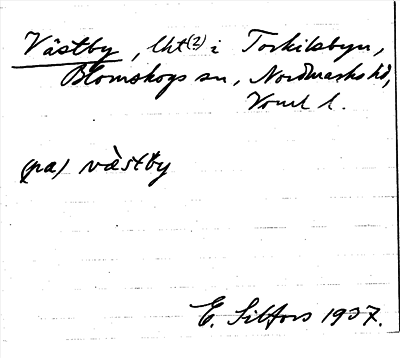 Västby, lht(2) i Torkilsbyn,
Blomskogs sn, Nordmarks hd,
Värml l.
(pa) vàstby
E. Silfors 1937.